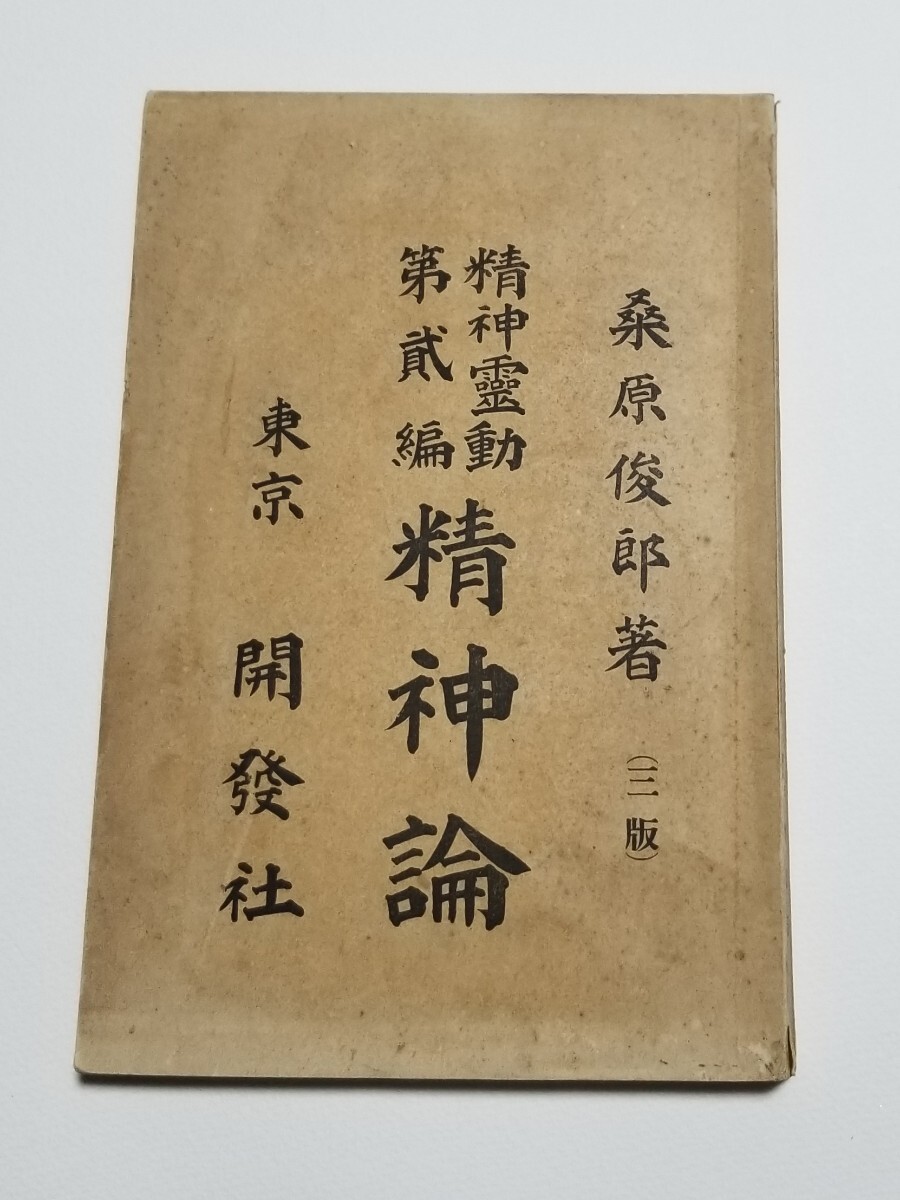 桑原俊郎著（三版）
精神靈動
第貳編
精神論
東京 開發社